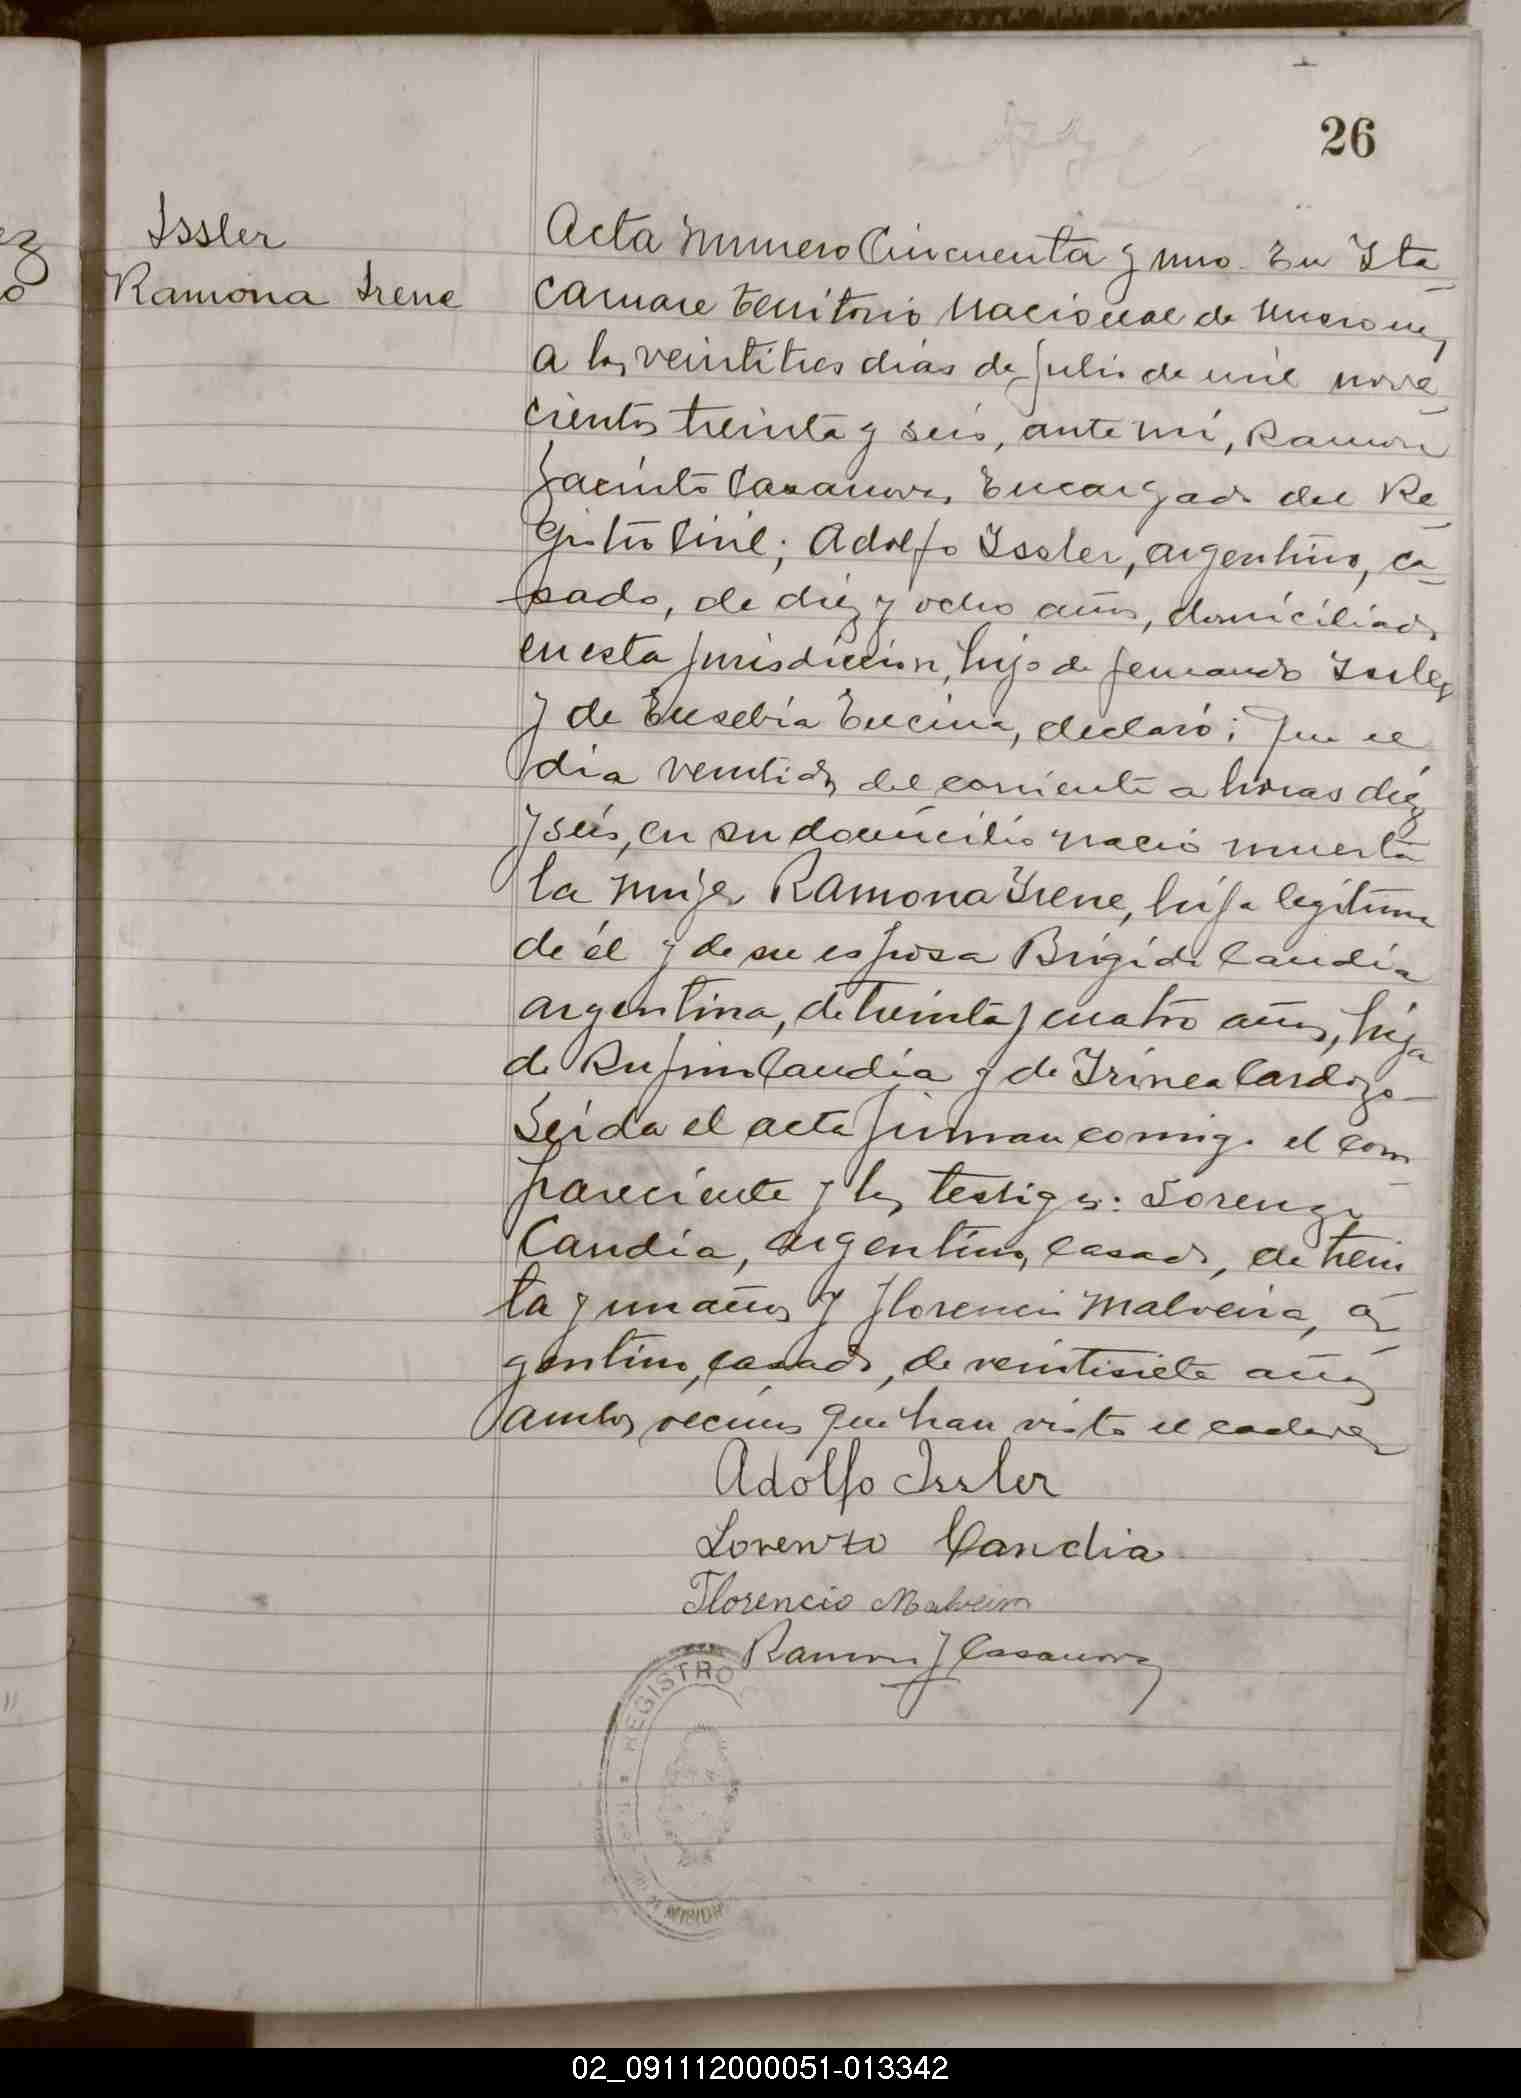 26
Issler
Ramona Irene
Acta Numero Cincuenta y uno. En Ita_
caruare territorio Nacional de Misiones,
a los veintitres dias de Julio de mil nove_
cientos treinta y seis, ante mí, Ramón
Jacinto Casanova, Encargado del Re_
gistro Civil; Adolfo Issler, argentino, ca_
sado, de diez y ocho años, domiciliado
en esta jurisdicción, hijo de Fernando Issler
y de Eusebia Encina, declaró: Que el
dia veintidos del corriente a horas diez
y seis, en su domicilio nació muerta
la mujer Ramona Irene, hija legitima
de él y de su esposa Brigida Candia
argentina, de treinta y cuatro años, hija
de Rufino Candia y de Irinea Cardozo_
Leída el acta firman conmigo el com_
pareciente y los testigos: Lorenzo
Candia, argentino, casado, de trein
ta y un años y Florencio Malveira, ar_
gentino, casado, de veintisiete años
ambos vecinos que han visto el cadaver
Adolfo Issler
Lorenzo Candia
Florencio Malveira
Ramon J Casanova
REGISTRO
MISION
02_091112000051-013342